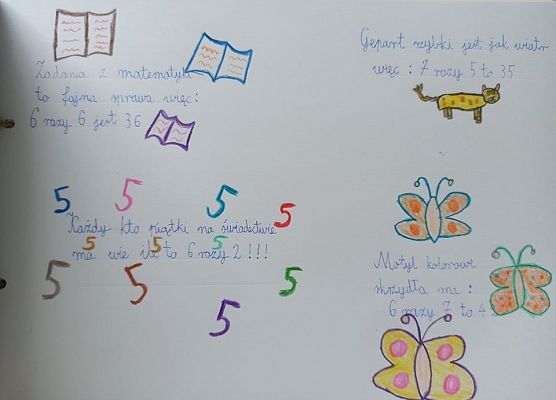 Zadania z matematyki
to fajna sprawa więc:
6 razy 6 jest 36
Gepart szybki jest jak wiatr
więc : 7 razy 5 to 35
5 5 5 5
Każdy kto piątki na świadectwie
5 5 5
ma wie ile to 6 razy 2 !!!
5 5 5 5
Motyl kolorowe
skrzydła ma :
6 razy 7 to 4